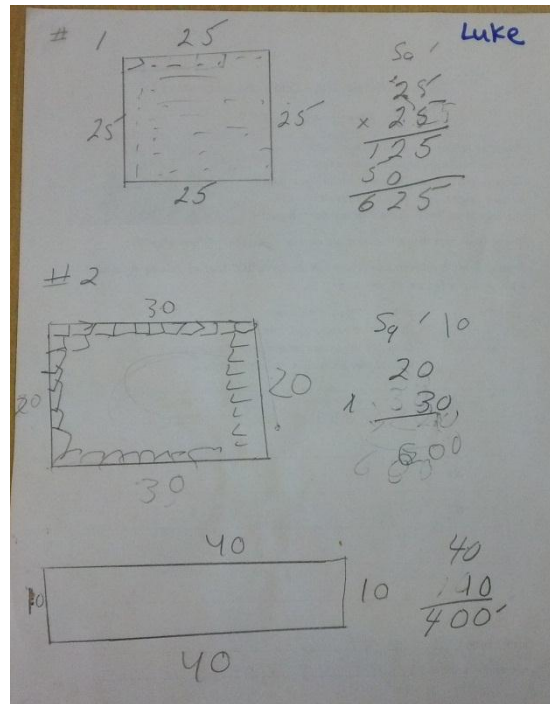 # 1 25 Luke
25 25
25
Sq '
25
x 25
125
50
625
# 2
30
20 20
30
Sq ' 10
20
30
600
40
10 10
40
40
10
400